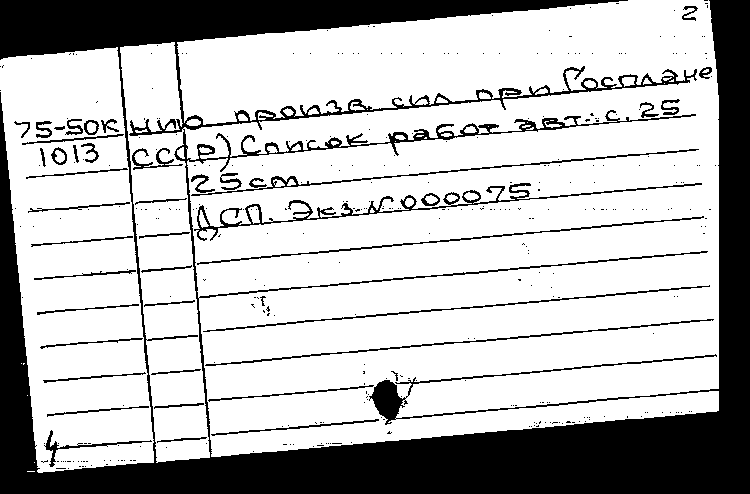 2
75-50К нию произв. сил при Госплане
1013 СССР) Список работ авт.: с. 25
25 см.
ДСП. Экз. № 000075.
4